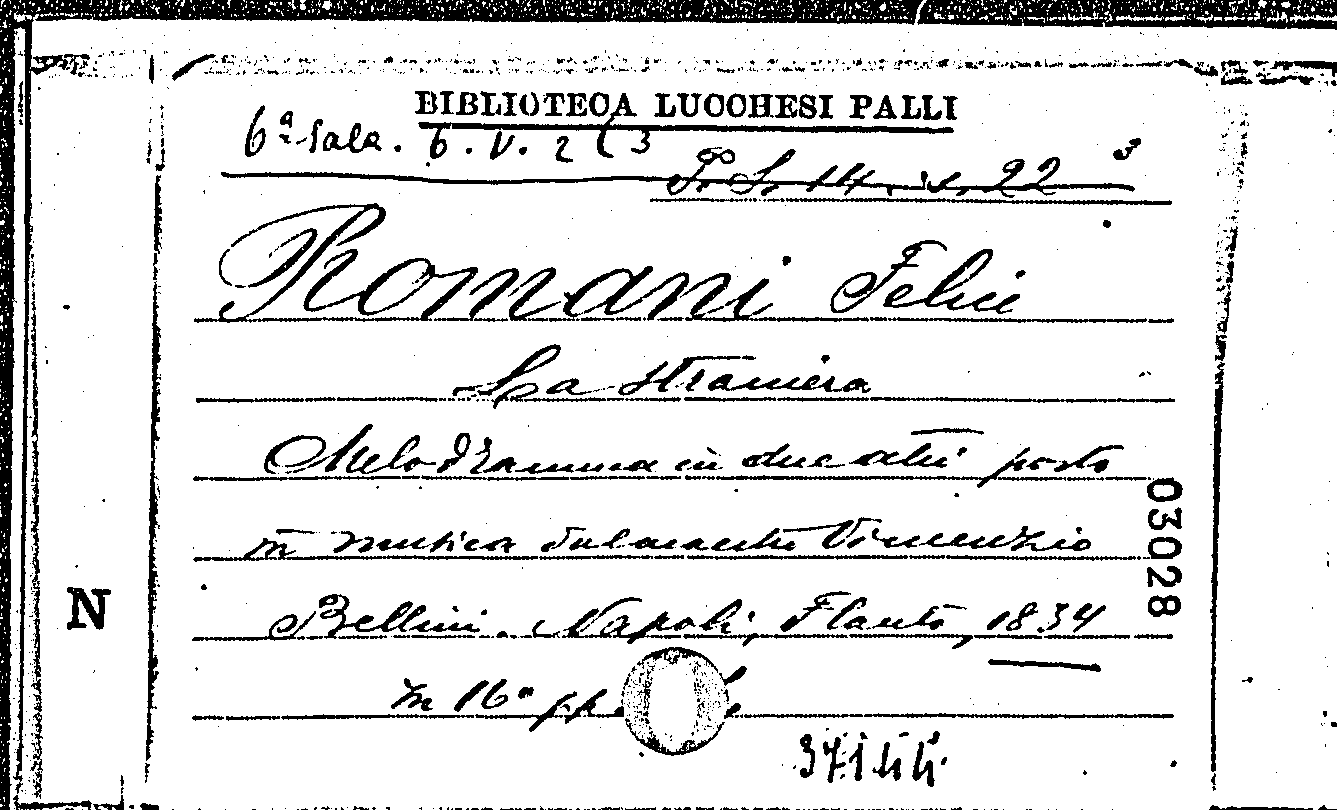 BIBLIOTECA LUCCHESI PALLI
6ª Sala. 6. V. 2 (3
P. S. 14. 22 3
Romani Felice
La straniera
Melodramma in due atti posto
in musica dal maestro Vincenzio
Bellini. Napoli, Flauto, 1834
in 16° pp.
03028
N